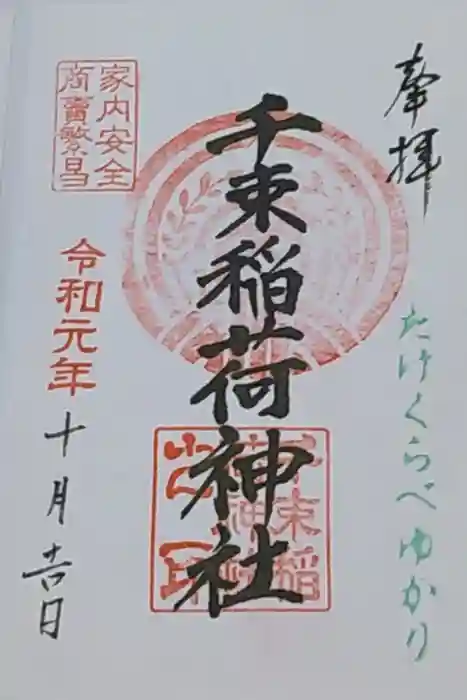 奉拝
たけくらべゆかり
千束稲荷神社
家内安全
商賣繁昌
令和元年
十月吉日